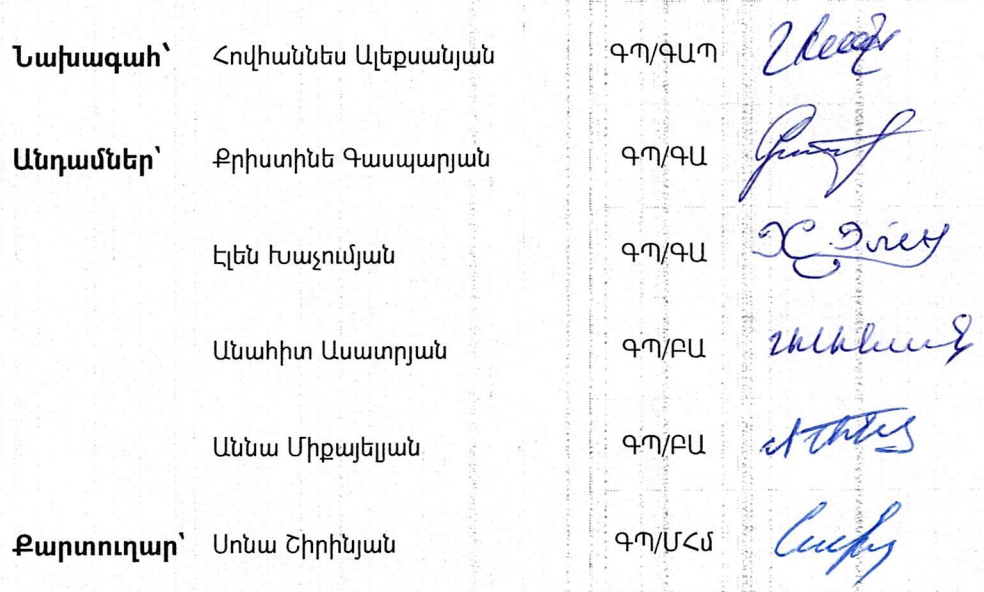 Նախագահ՝ Հովհաննես Ալեքսանյան ԳՊ/ԳԱՊ
Անդամներ՝ Քրիստինե Գասպարյան ԳՊ/ԳԱ
Էլեն Խաչումյան ԳՊ/ԳԱ
Անահիտ Ասատրյան ԳՊ/ԲԱ
Աննա Միքայելյան ԳՊ/ԲԱ
Քարտուղար՝ Սոնա Շիրինյան ԳՊ/ՄՀմ